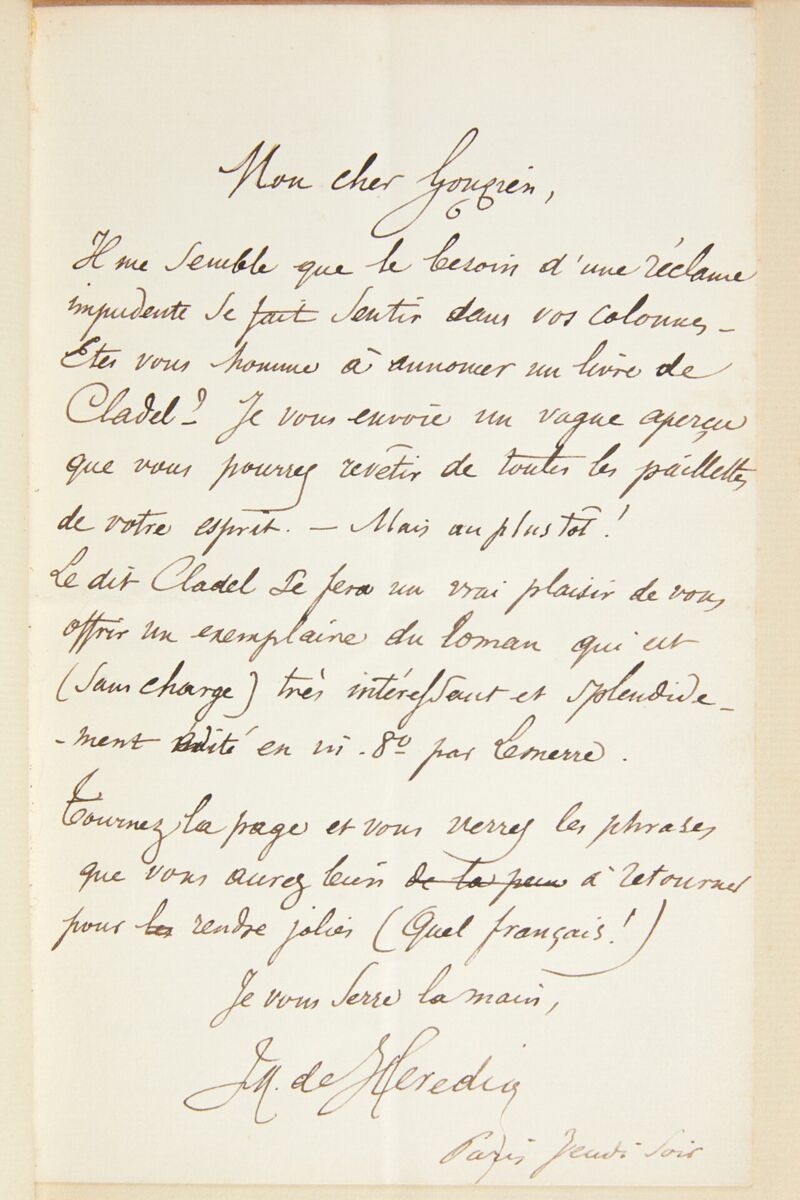 Mon cher Gouzien,
Il me semble que le besoin d'une réclame
impudente se fait sentir dans vos colonnes –
Etes vous homme à annoncer un livre de
Cladel? Je vous envoie un vague aperçu
que vous pourrez revêtir de toutes les paillettes
de votre esprit. – Mais au plus tôt!
Le dit Cladel se fera un vrai plaisir de vous
offrir un exemplaire du roman qui est
(sans charge) très intéressant et splendide-
-ment édité en in-8º par Lemerre.
Tournez la page et vous verrez les phrases
que vous aurez bien de la peine à retourner
pour les rendre jolies (Quel français!)
Je vous serre la main,
JM. de Heredia
Paris Jeudi soir